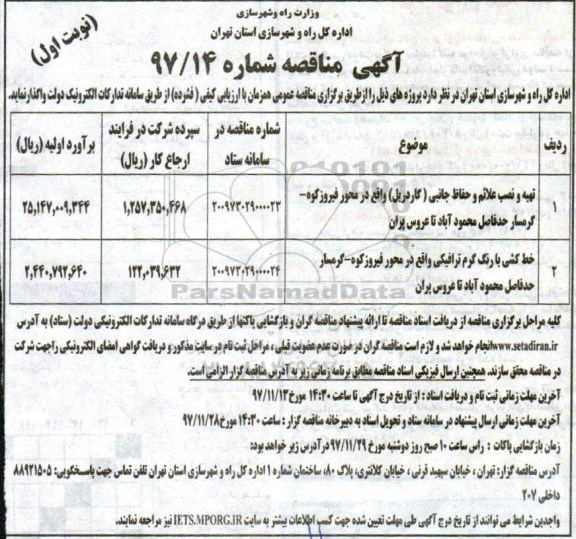 وزارت راه وشهرسازی
اداره کل راه و شهرسازی استان تهران
(نوبت اول)
آگهی مناقصه شماره ۹۷/۱۴
اداره کل راه و شهرسازی استان تهران در نظر دارد پروژه های ذیل را ازطریق برگزاری مناقصه عمومی همزمان با ارزیابی کیفی ( فشرده ) از طریق سامانه تدارکات الکترونیک دولت واگذارنماید.
ردیف موضوع شماره مناقصه در سامانه ستاد سپرده شرکت در فرایند ارجاع کار (ریال) برآورد اولیه (ریال)
۱ تهیه و نصب علائم و حفاظ جانبی ( گاردریل) واقع در محور فیروزکوه- گرمسار حدفاصل محمود آباد تا عروس پران ۲۰۰۹۷۳۰۲۹۰۰۰۰۲۳ ۱,۲۵۷,۳۵۰,۴۶۸ ۲۵,۱۴۷,۰۰۹,۳۴۴
۲ خط کشی با رنگ گرم ترافیکی واقع در محور فیروزکوه-گرمسار حدفاصل محمود آباد تا عروس پران ۲۰۰۹۷۳۰۲۹۰۰۰۰۲۴ ۱۲۲,۰۳۹,۶۳۲ ۲,۴۴۰,۷۹۲,۶۴۰
ParsNamadData
کلیه مراحل برگزاری مناقصه از دریافت اسناد مناقصه تا ارائه پیشنهاد مناقصه گران و بازگشایی پاکتها از طریق درگاه سامانه تدارکات الکترونیکی دولت (ستاد) به آدرس
www.setadiran.ir انجام خواهد شد و لازم است مناقصه گران در صورت عدم عضویت قبلی ، مراحل ثبت نام در سایت مذکور و دریافت گواهی امضای الکترونیکی راجهت شرکت
در مناقصه محقق سازند. همچنین ارسال فیزیکی اسناد مناقصه مطابق برنامه زمانی زیر به آدرس مناقصه گزار الزامی است.
آخرین مهلت زمانی ثبت نام و دریافت اسناد : از تاریخ درج آگهی تا ساعت ۱۴:۳۰ مورخ ۹۷/۱۱/۱۳
آخرین مهلت زمانی ارسال پیشنهاد در سامانه ستاد و تحویل اسناد به دبیرخانه مناقصه گزار : ساعت ۱۴:۳۰ مورخ ۹۷/۱۱/۲۸
زمان بازگشایی پاکات : راس ساعت ۱۰ صبح روز دوشنبه مورخ ۹۷/۱۱/۲۹ درآدرس زیر خواهد بود:
آدرس مناقصه گزار: تهران ، خیابان سپهبد قرنی ، خیابان کلانتری، پلاک ۸۰، ساختمان شماره ۱ اداره کل راه و شهرسازی استان تهران تلفن تماس جهت پاسخگویی: ۸۸۹۲۱۵۰۵
داخلی ۲۰۷
واجدین شرایط می توانند از تاریخ درج آگهی طی مهلت تعیین شده جهت کسب اطلاعات بیشتر به سایت IETS.MPORG.IR نیز مراجعه نمایند.